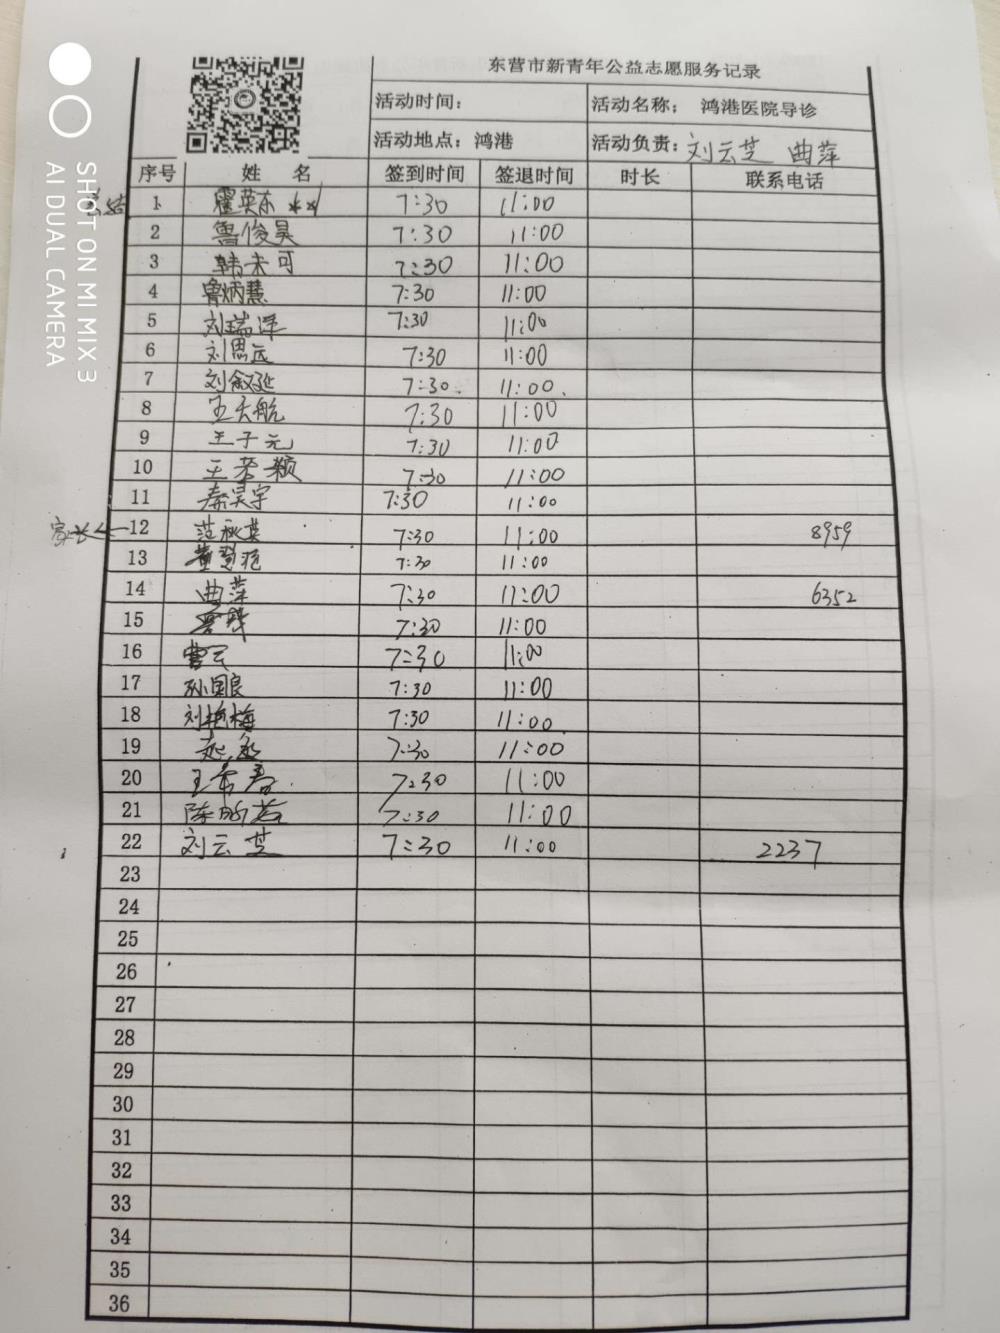 东营市新青年公益志愿服务记录
活动时间： 活动名称： 鸿港医院导诊
活动地点：鸿港 活动负责：刘云芝 曲萍
序号 姓 名 签到时间 签退时间 时长 联系电话
总结 1 霍英东 7:30 11:00
2 鲁俊昊 7:30 11:00
3 韩未可 7:30 11:00
4 曾炳慧 7:30 11:00
5 刘瑞泽 7:30 11:00
6 刘思远 7:30 11:00
7 刘叙延 7:30 11:00
8 王天航 7:30 11:00
9 王子元 7:30 11:00
10 王若颖 7:30 11:00
11 秦昊宇 7:30 11:00
家长← 12 范秋英 7:30 11:00 8959
13 7:30 11:00
14 曲萍 7:30 11:00 6352
15 7:30 11:00
16 曹云 7:30 11:00
17 孙国良 7:30 11:00
18 刘艳梅 7:30 11:00
19 7:30 11:00
20 7:30 11:00
21 陈昕若 7:30 11:00
22 刘云芝 7:30 11:00 2237
23
24
25
26
27
28
29
30
31
32
33
34
35
36
SHOT ON MI MIX 3
AI DUAL CAMERA